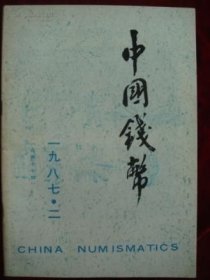 中國錢幣
一九八七·二
CHINA NUMISMATICS